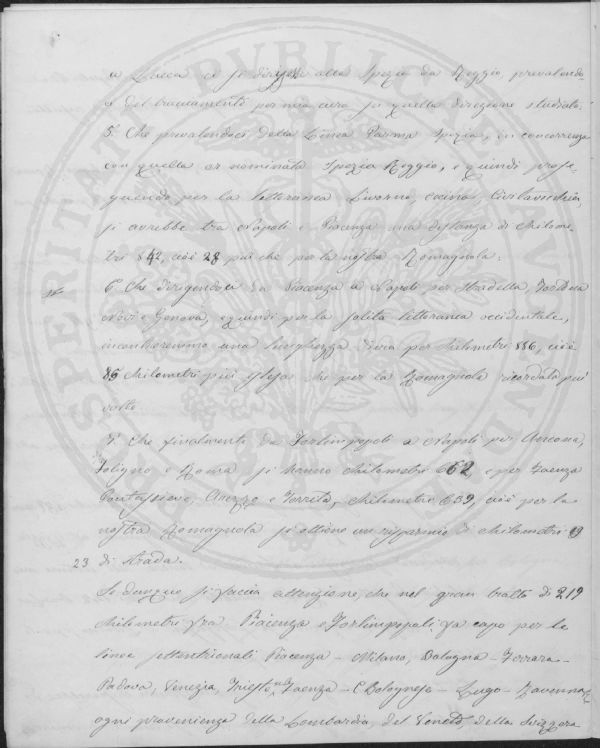 a Lucca ci si dirigesse alla Spezia da Reggio, prevalendo-
ci del tracciamento per mia cura in quella direzione studiato.
5° Che prevalendoci della Linea Parma Spezia, in concorrenza
con quella or nominata Spezia Reggio, e quindi prose-
guendo per la litteranea Livorno, Cecina, Civitavecchia,
si avrebbe tra Napoli e Piacenza una distanza di Chilome-
tri 842, cioè 28 più che per la nostra Romagnola.
6° Che dirigendoci da Piacenza a Napoli per Stradella, Tortona
Novi e Genova, e quindi per la solita litteranea occidentale,
incontreremmo una lunghezza viaria per chilometri 886, cioè
85 chilometri più estesa che per la Romagnola ricordata più
volte.
7° Che finalmente da Forlimpopoli a Napoli per Ancona,
Foligno e Roma si hanno chilometri 662, e per Faenza
Pontassieve, Arezzo e Torrita, chilometri 639, cioè per la
nostra Romagnola si ottiene un risparmio di chilometri
23 di strada.
Se dunque si faccia attenzione, che nel gran tratto di 219
chilometri fra Piacenza e Forlimpopoli, fa capo per le
linee settentrionali Piacenza – Milano, Bologna – Ferrara –
Padova, Venezia, Trieste, ed Faenza – C. Bolognese – Lugo – Ravenna,
ogni provenienza della Lombardia, del Veneto, della Svizzera
PROSPERITATI PUBLICAE